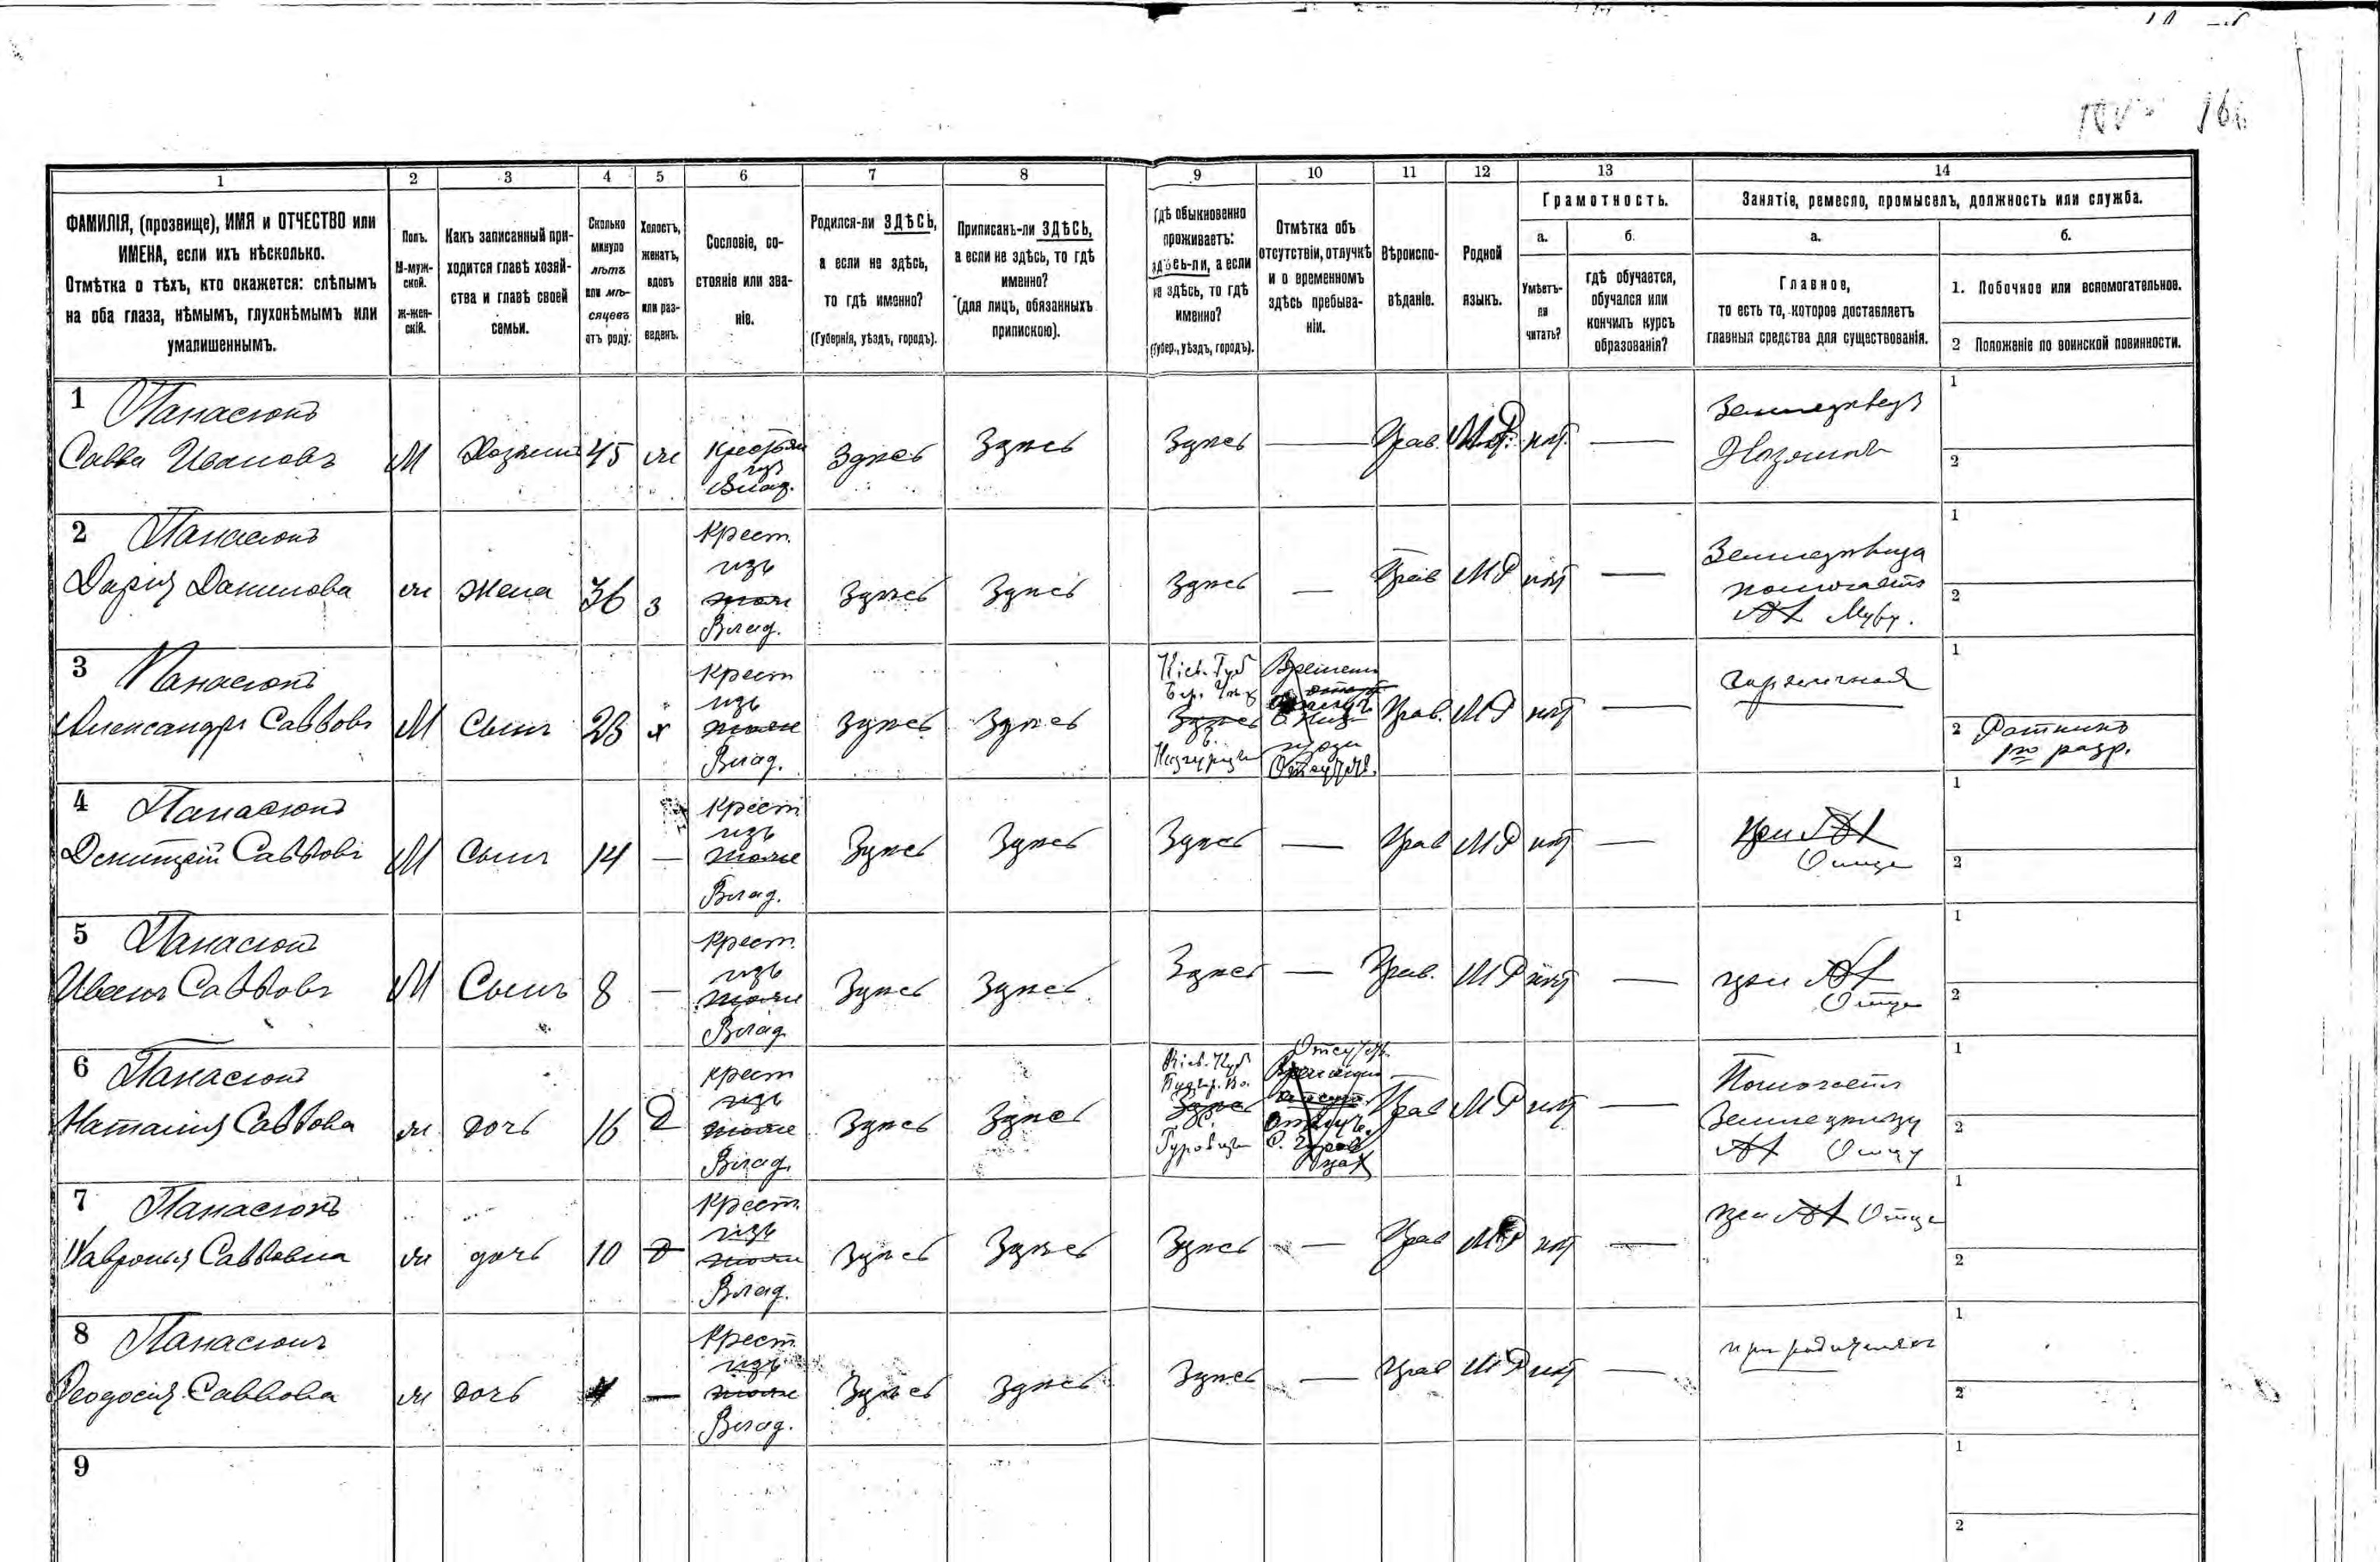 1
2
3
4
5
6
7
8
9
10
11
12
13
14
ФАМИЛІЯ, (прозвище), ИМЯ и ОТЧЕСТВО или
ИМЕНА, если ихъ нѣсколько.
Отмѣтка о тѣхъ, кто окажется: слѣпымъ
на оба глаза, нѣмымъ, глухонѣмымъ или
умалишеннымъ.
Полъ.
М-муж-
ской.
ж-жен-
скій.
Какъ записанный при-
ходится главѣ хозяй-
ства и главѣ своей
семьи.
Сколько
минуло
лѣтъ
или мѣ-
сяцевъ
отъ роду.
Холостъ,
женатъ,
вдовъ
или раз-
веденъ.
Сословіе, со-
стояніе или зва-
ніе.
Родился-ли ЗДѢСЬ,
а если не здѣсь,
то гдѣ именно?
(Губернія, уѣздъ, городъ).
Приписанъ-ли ЗДѢСЬ,
а если не здѣсь, то гдѣ
именно?
(для лицъ, обязанныхъ
припискою).
Гдѣ обыкновенно
проживаетъ:
здѣсь-ли, а если
не здѣсь, то гдѣ
именно?
(Губер., уѣздъ, городъ).
Отмѣтка объ
отсутствіи, отлучкѣ
и о временномъ
здѣсь пребыва-
ніи.
Вѣроиспо-
вѣданіе.
Родной
языкъ.
Грамотность.
а.
Умѣетъ-
ли
читать?
б.
гдѣ обучается,
обучался или
кончилъ курсъ
образованія?
Занятіе, ремесло, промыселъ, должность или служба.
а.
Главное,
то есть то, которое доставляетъ
главныя средства для существованія.
б.
1. Побочное или вспомогательное.
2 Положеніе по воинской повинности.
1 Панасюкъ
Савва Ивановъ М Хозяинъ 45 ж Крестьян изъ Влад. Здѣсь Здѣсь Здѣсь — Прав. М.Р. нѣт — Земледѣлецъ Хозяинъ 1 2
2 Панасюкъ
Дарія Данилова ж Жена 36 з Крест. изъ Влад. Здѣсь Здѣсь Здѣсь — Прав МР нѣт — Земледѣльца помогаетъ Мужу. 1 2
3 Панасюкъ
Александръ Саввовъ М Сынъ 23 х Крест изъ Влад. Здѣсь Здѣсь Кіев. Губ Здѣсь Прав. МР нѣт — 1 2 Ратникъ 1го разр.
4 Панасюкъ
Дмитрій Саввовъ М Сынъ 14 — Крест изъ Влад. Здѣсь Здѣсь Здѣсь — Прав МР нѣт — при Отцѣ 1 2
5 Панасюкъ
Иванъ Саввовъ М Сынъ 8 — Крест. изъ Влад Здѣсь Здѣсь Здѣсь — Прав. МР нѣт — при Отцѣ 1 2
6 Панасюкъ
Наталія Саввова ж дочь 16 Д Крест изъ Влад. Здѣсь Здѣсь Кіев. Губ Здѣсь Прав МР нѣт — Помогаетъ Отцу 1 2
7 Панасюкъ
Саввовна ж дочь 10 Крест. изъ Влад. Здѣсь Здѣсь Здѣсь — Прав МР нѣт — при Отцѣ 1 2
8 Панасюкъ
Феодосія Саввова ж дочь 4 — Крест. изъ Влад. Здѣсь Здѣсь Здѣсь — Прав МР нѣт — при родителяхъ 1 2
9 1 2